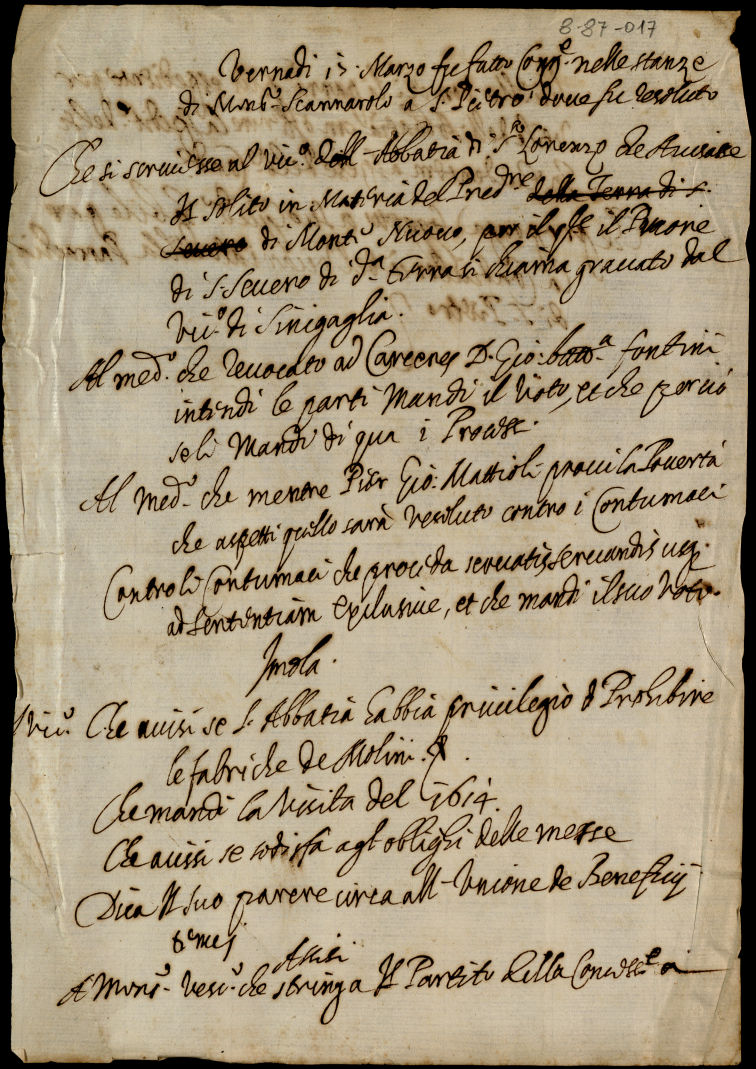 8-87-017
Vernadi 15. Marzo fu fatto Cong.e nelle stanze
di Mons.r Scannarolo a S. Pietro dove fu resoluto
Che si scrivesse al Vic.o dell Abbatia di S.to Lorenzo che Avisasse
Il solito in Materia del Pred.re della Terra di S.
Severo di Monte Nuovo, per il q.le il Priore
di S. Severo di d.a Terra si chiama gravato dal
Vic.o di Sinigaglia.
Al med.o che revocato ad Carceres D. Gio: batt.a fontini
intendi le parti Mandi il Voto, et che perciò
se li Mandi di qua i Process.
Al Med.o che mentre Pier Gio: Mattioli provi la Povertà
che aspetti quello sarà resoluto contro i Contumaci
Contro li Contumaci che proceda servatis servandis usq.
ad sententiam exclusive, et che mandi il suo Voto.
Imola.
Vic.o Che avisi se l'Abbatia habbia privilegio d Prohibire
le fabriche de Molini.
Che mandi la Visita del 1614.
Che avisi se sodisfa agl oblighi delle messe
Dica Il suo parere circa all Unione de Beneficij
Assisi
A Mons.r Vesc.o che stringa Il Partito della